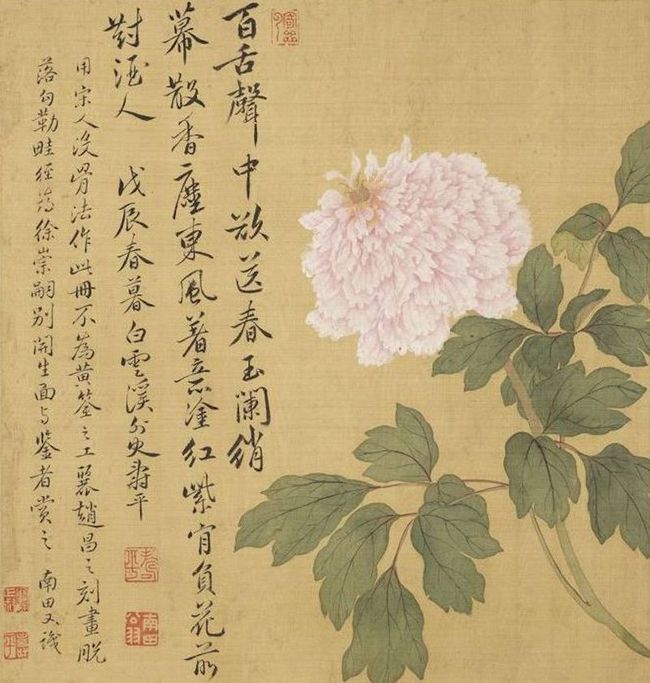 百舌聲中欲送春玉闌綃
幕散香塵東風著意塗紅紫肎負花前
對酒人 戊辰春暮白雲溪外史壽平
壽平
南田翁
用宋人没骨法作此冊不為黃筌之工襲趙昌之刻畫脫
落勾勒畦徑為徐崇嗣別開生面与鉴者賞之 南田又識